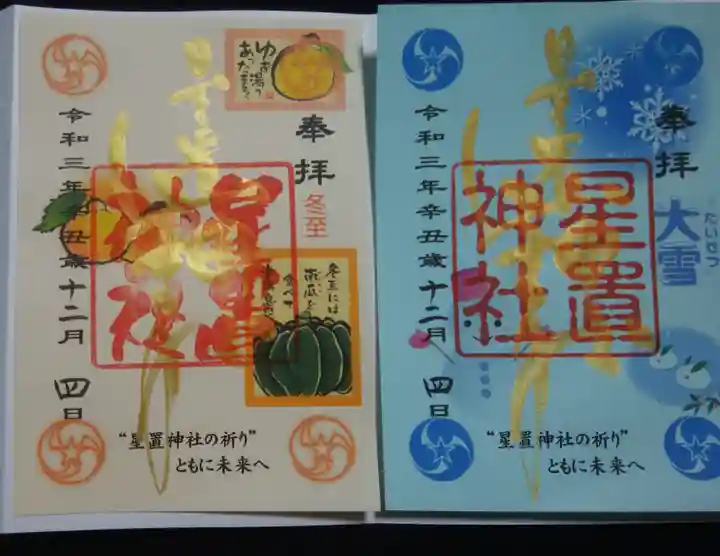 奉拝
冬至
ゆず湯で
あったまろう
星置
神社
令和三年辛丑歳十二月 四日
冬至には
南瓜を
食べて
“星置神社の祈り”
ともに未来へ
奉拝
大雪
たいせつ
星置
神社
令和三年辛丑歳十二月 四日
“星置神社の祈り”
ともに未来へ